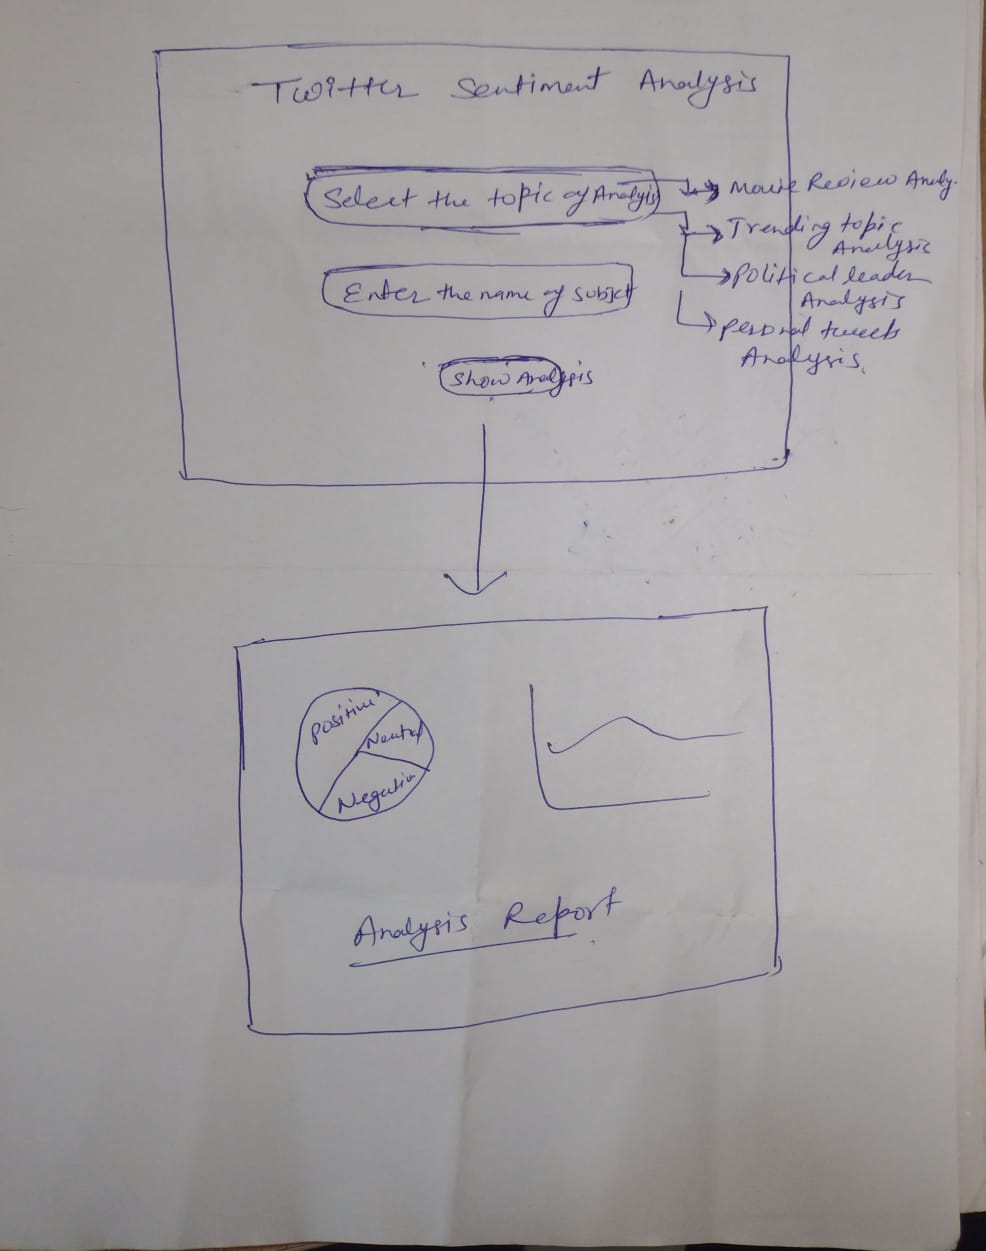 Twitter Sentiment Analysis
Select the topic of Analysis
Movie Review Analy.
Trending topic
Analysis
Political leader
Analysis
personal tweets
Analysis.
Enter the name of subject
Show Analysis
Positive
Neutral
Negative
Analysis Report